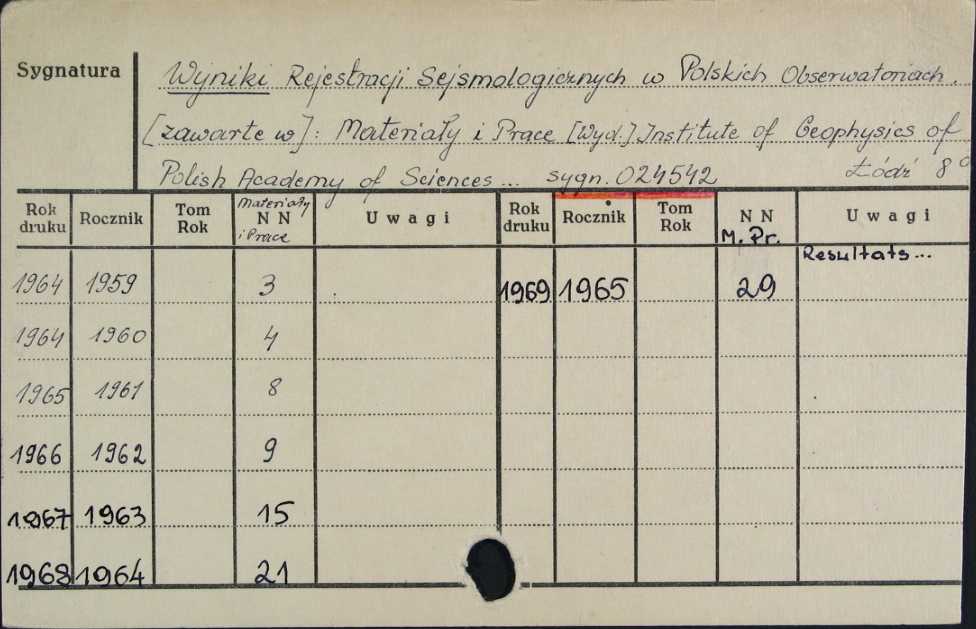 Sygnatura
Wyniki Rejestracji Sejsmologicznych w Polskich Obserwatoriach.
[zawarte w]: Materiały i Prace [Wyd.] Institute of Geophysics of
Polish Academy of Sciences... sygn. 024542 Łódź 8°
Rok druku Rocznik Tom Rok Materiały NN i Prace Uwagi Rok druku Rocznik Tom Rok NN M. Pr. Uwagi
Resultats...
1964 1959 3 1969 1965 29
1964 1960 4
1965 1961 8
1966 1962 9
1967 1963 15
1968 1964 21